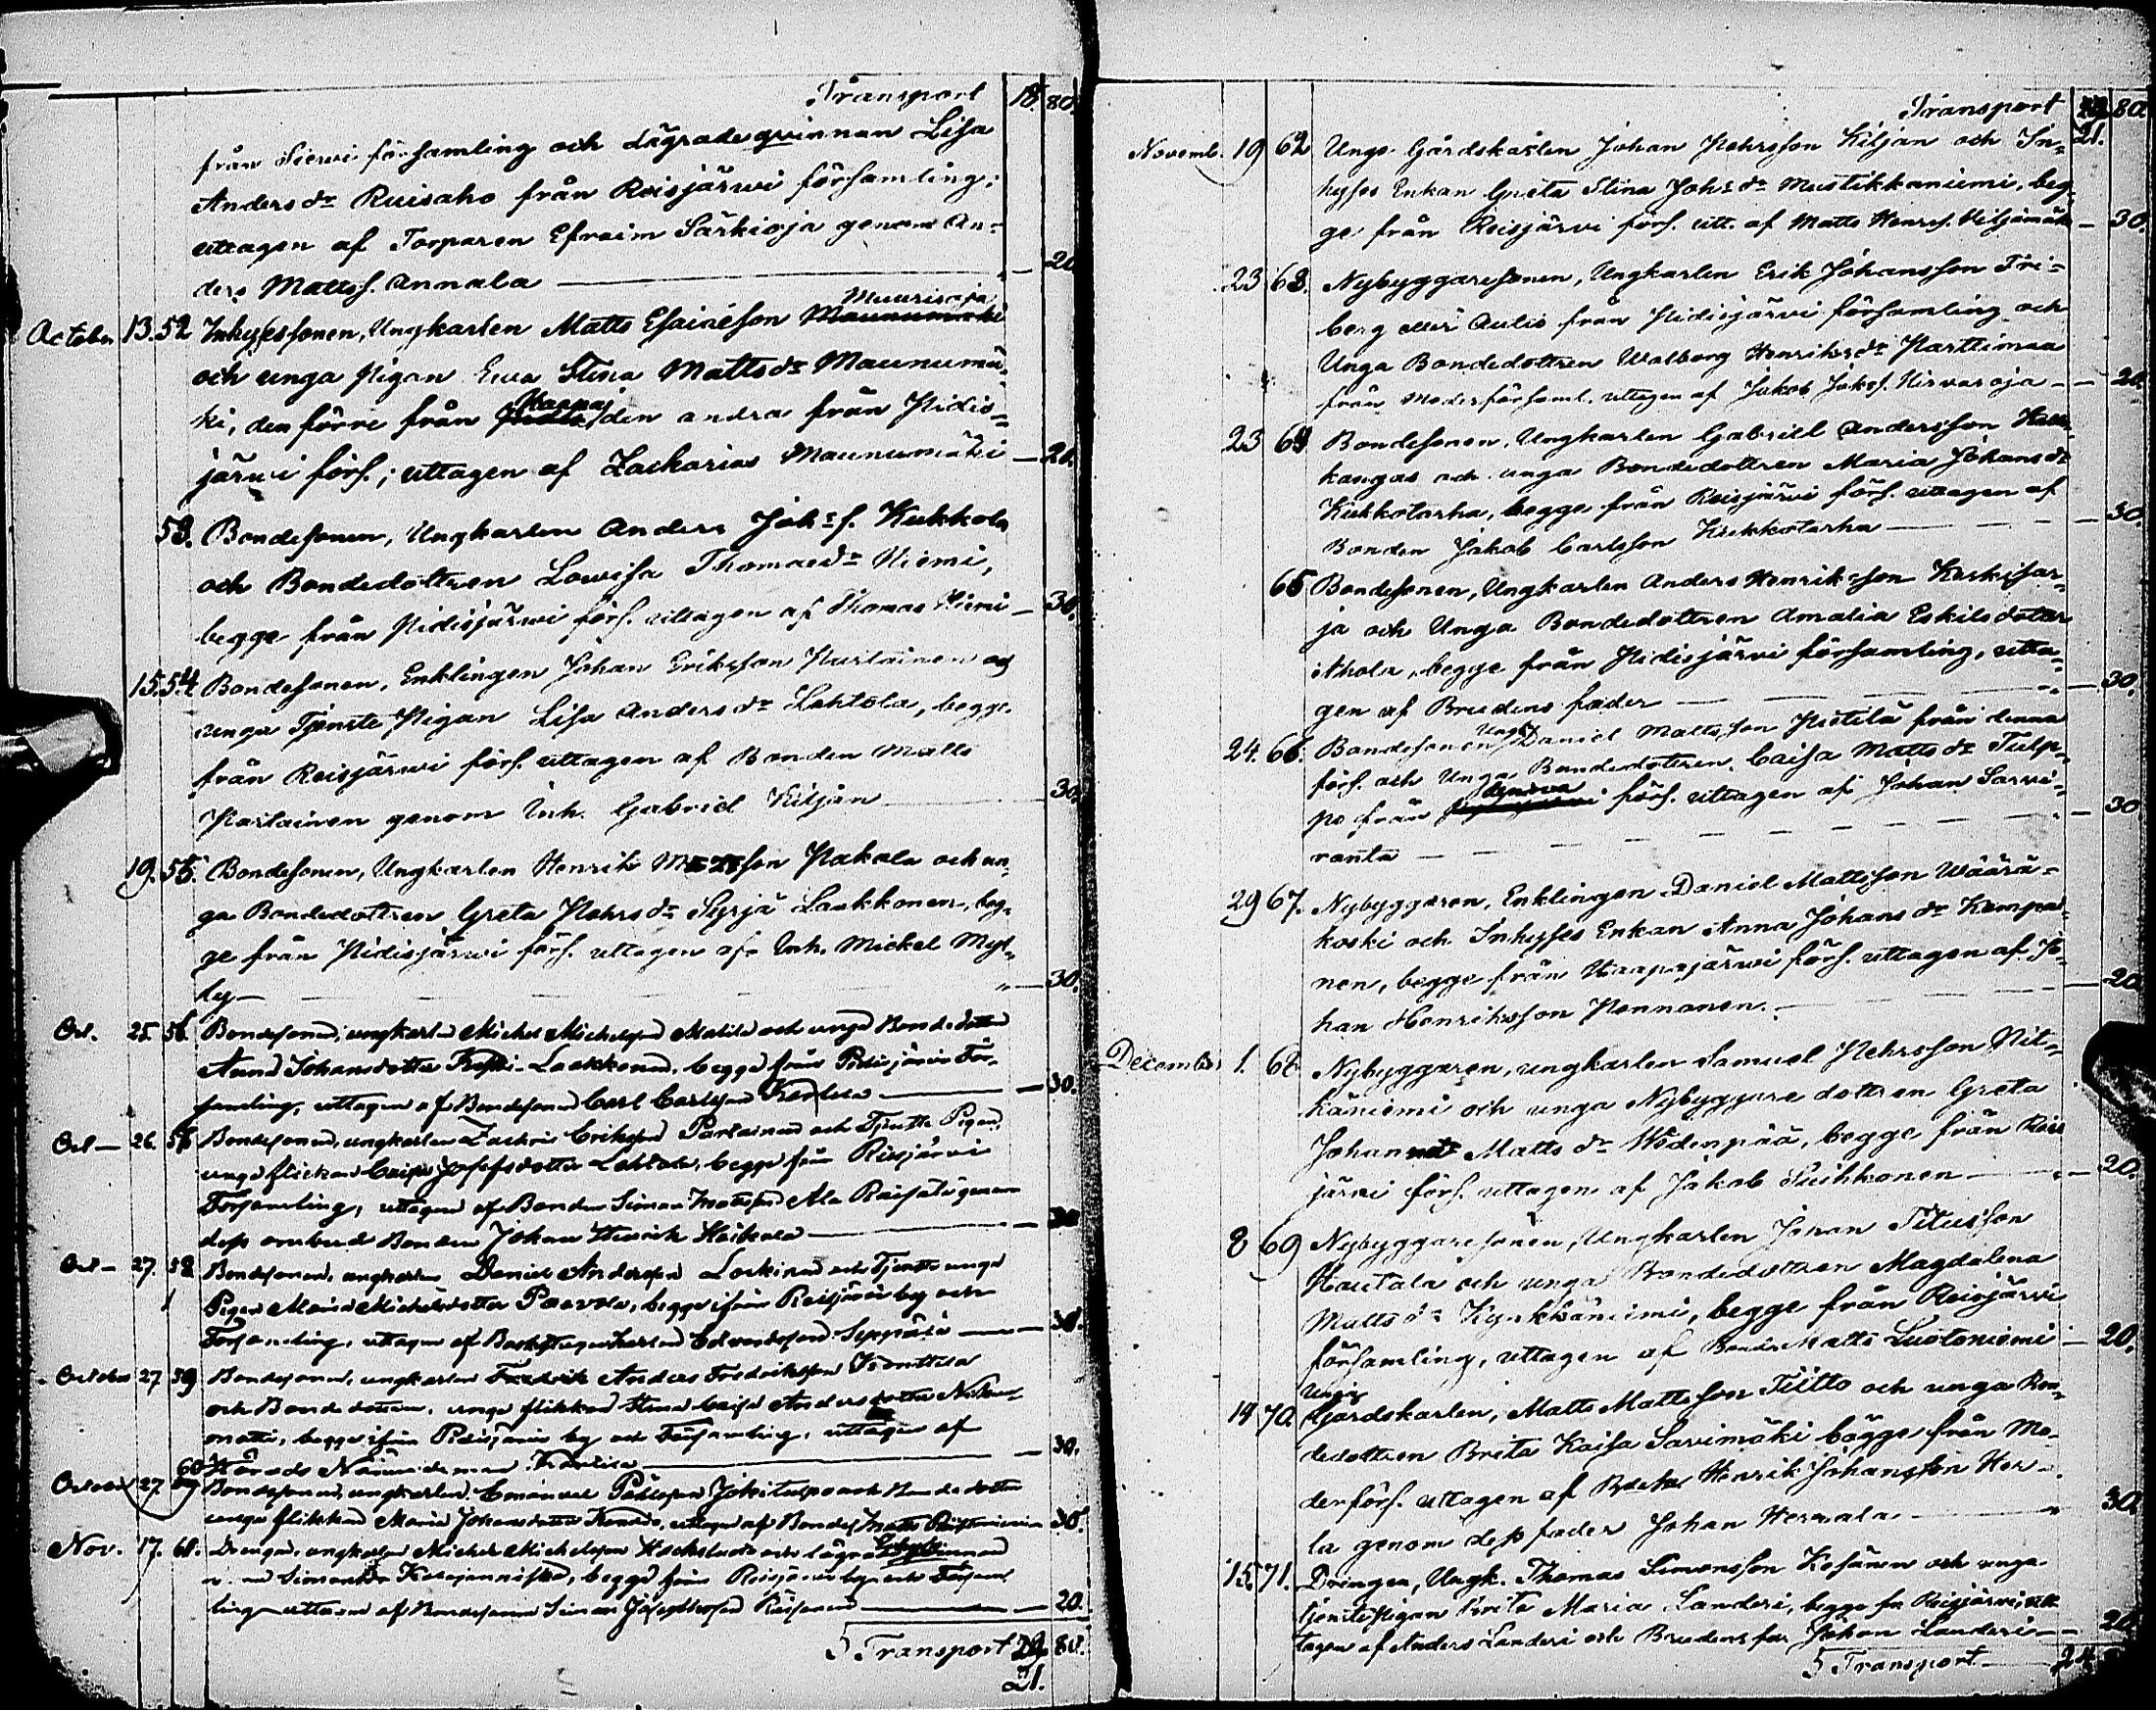 Transport 18. 80.
från Sievi församling och lägradeqvinnan Lisa
Anders dr Ruisaho från Reisjärwi församling;
uttagen af Torparen Efraim Särkioja genom An-
ders Mattss. Annala — 20
October 13. 52 Inhysessonen, Ungkarlen Matts Esaiæson Muurisoja
och unga Pigan Ewa Stina Matts dr Maunumä-
ki, den förre från Haapaj den andra från Pidis-
järwi förs.; uttagen af Zacharias Maunumäki — 20.
53. Bondesonen, Ungkarlen Anders Joh:s. Kukkola
och Bondedottren Lowisa Thomæ dr Niemi,
begge från Pidisjärwi förs. uttagen af Thomas Niemi — 30.
15. 54. Bondesonen, Enklingen Johan Eriksson Parlainen og
unga Tjenste Pigan Lisa Anders dr Lahtola, begge
från Reisjärwi förs. uttagen af Bonden Matts
Parlainen genom Inh. Gabriel Kiljan 30.
19. 55. Bondesonen, Ungkarlen Henrik Matsson Pakola och un-
ga Bondedottren Greta Pehrs dr Syrjä Laakkonen, beg-
ge från Pidisjärwi förs. uttagen af Inh. Mickel Myl-
ly — 30.
Oct. 25. 56 Bondesonen, ungkarlen Michel Michelsson Matila och unga Bondedotter
Anna Johansdotter Laakkonen, begge från Pidisjärwi För-
samling, uttagen af Bondesonen Carl Carlsson — 30.
Oct — 26. Bondesonen, ungkarlen Zachris Eriksson Parlainen och Tjenste Pigan,
unga flickan Caisa Josefsdotter Lahtola, begge från Reisjärvi
Församling, uttagen af Bonden Simon Matsson Ala genom
dess ombud Bonden Johan Henrik — 30
Oct — 27. 58 Bondesonen, ungkarlen Daniel Andersson och Tjenste unga
Pigan Maria Michelsdotter Paavola, begge ifrån Reisjärvi by och
Församling, uttagen af Edvardsson Seppälä — 30.
October 27 59 Bondesonen, ungkarlen Anders Fredriksson
och Bonde dottren, unga flickan Stina Caisa Anders dotter
begge ifrån Pidisjärvi by och Församling, uttagen af
Härads Nämndeman — 30.
October 27. 60 Bondesonen, ungkarlen Emanuel Påhlsson Jokitulpo och Bonde dotter
unga flickan Maria Johansdotter uttagen af Bondes Matts 30.
Nov. 17. 61. Drängen, ungkarlen Michel Michelsson och
begge från Reisjärvi by och Försam-
ling uttagen af Bondesonen Simon — 20.
S Transport 80.
21.
Transport 80.
21.
Novemb. 19 62 Unge Gårdskarlen Johan Pehrsson Kiljan och In-
hyses Enkan Greta Stina Joh:s dr Mustikkaniemi, beg-
ge från Reisjärvi förs. utt. af Matts Henrs. — 30.
23 63. Nybyggaresonen, Ungkarlen Erik Johansson Fri-
berg eller Aulis från Pidisjärvi församling och
Unga Bondedottren Walborg Henriks dr Parttimaa
från Moderförsaml. uttagen af Jakob Jakss. Hirvasoja — 20.
23 64 Bondesonen, Ungkarlen Gabriel Andersson
kangas och unga Bondedottren Maria Johans dr
Kukkotarha, begge från Reisjärvi förs. uttagen af
Bonden Jakob Carlsson Kukkotarha — 30.
65 Bondesonen, Ungkarlen Anders Henriksson Karkisar-
ja och Unga Bondedottren Amalia Eskils dotter
Ahola, begge från Pidisjärvi församling, utta-
gen af Brudens fader — 30.
24. 66. Bondesonen Ungk. Daniel Mattsson Pietilä från denna
förs. och Unga Bondedottren, Caisa Matts dr Tulp-
po från förs. uttagen af Johan Sarvi-
ranta — 30
29 67. Nybyggaren, Enklingen Daniel Mattsson Wäärä-
koski och Inhyses Enkan Anna Johans dr Kempai-
nen, begge från Haapajärvi förs. uttagen af Jo-
han Henriksson Pennanen. — 20
December 1. 68 Nybyggaren, ungkarlen Samuel Pehrsson Pit-
käniemi och unga Nybyggare dottren Greta
Johanna Matts dr Wödenpää, begge från Reis
järvi förs. uttagen af Jakob Puihkonen — 20.
8 69 Nybyggaresonen, Ungkarlen Johan Titusson
Hautala och unga Bondedottren Magdalena
Matts dr Kynkkäniemi, begge från Reisjärvi
församling, uttagen af Bonden Matts Luotoniemi — 20.
Unga
14 70. Gårdskarlen, Matts Mattsson Tiitto och unga Bon-
dedottren Brita Kaisa Savimäki bägge från Mo-
derförs. uttagen af Henrik Johansson Her-
la genom dess fader Johan Hermala — 30.
15. 71. Drengen, Ungk. Thomas Simonsson Kesänen och unga
tjenstePigan Brita Maria Landeri, begge fr. Reisjärvi, utt
tagen af Anders Landeri och Brudens far Johan Landeri — 20
S Transport — 24